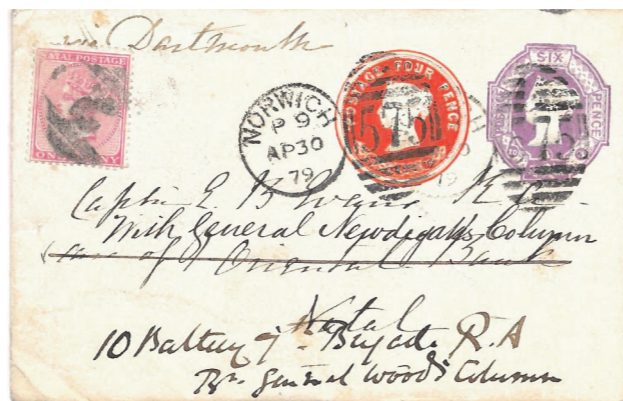 via Dartmouth
NATAL POSTAGE
ONE PENNY
NORWICH
P 9
AP 30
79
575
POSTAGE FOUR PENCE
SIX PENCE
75
79
Captn E. R. A.
With General Newdegate's Column
care of Oriental Bank
Natal
10 Battery 7 Brigade R. A
Br. General Woods Column